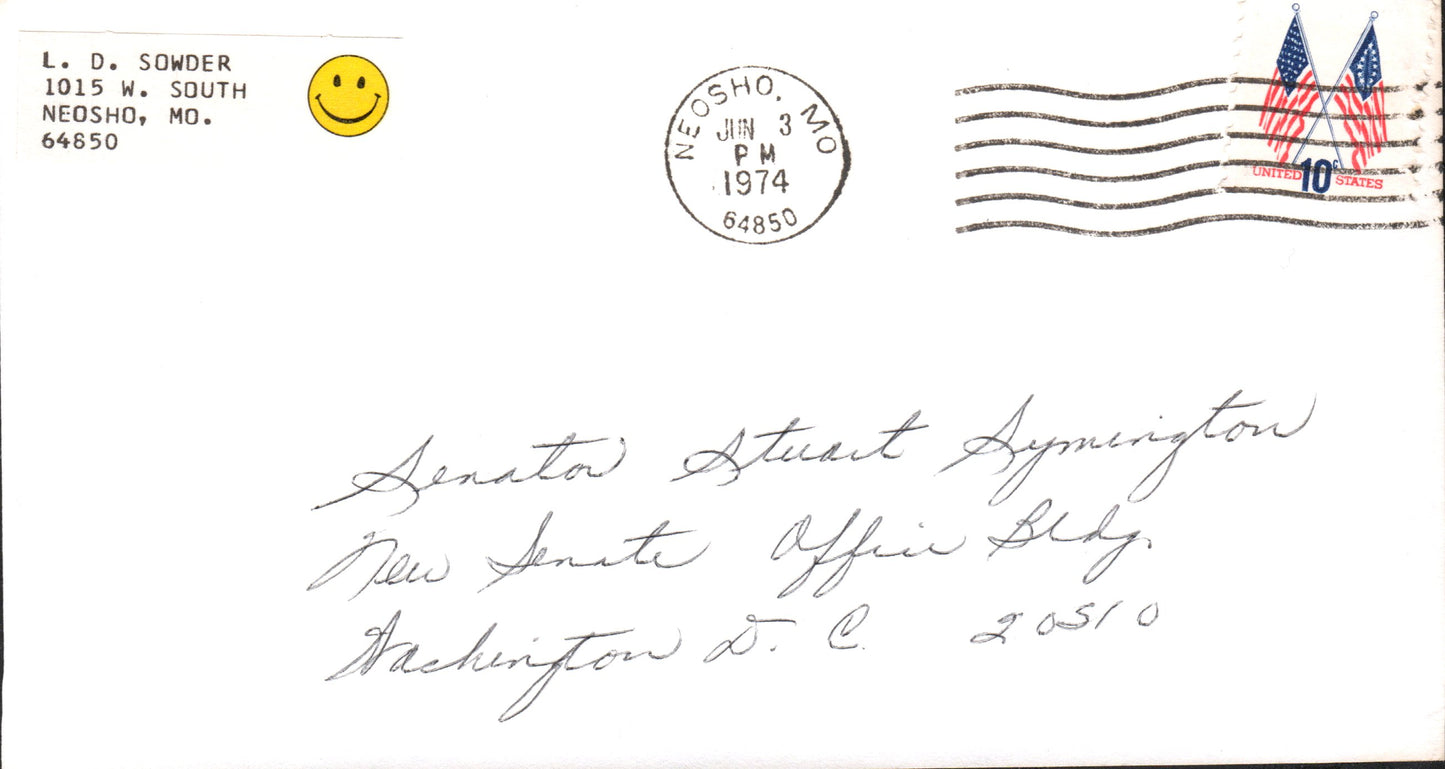 L. D. SOWDER
1015 W. SOUTH
NEOSHO, MO.
64850
NEOSHO, MO
JUN 3
PM
1974
64850
UNITED 10c STATES
Senator Stuart Symington
New Senate Office Bldg.
Washington D. C. 20510